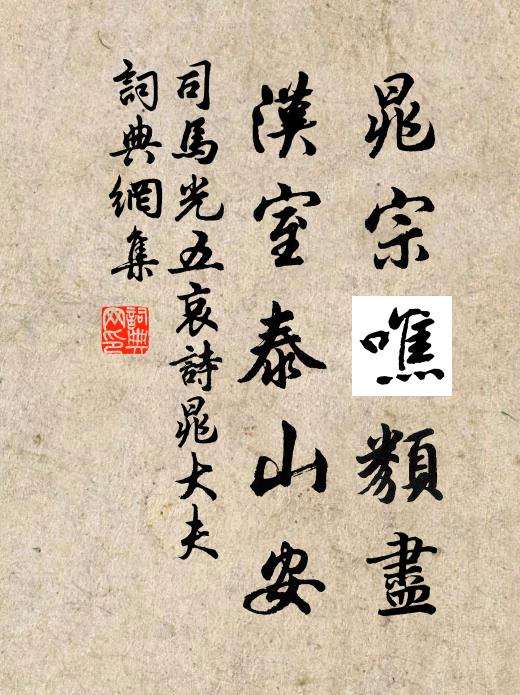 晁宗噍類盡
漢室泰山安
司馬光五哀詩晁大夫
詞典網集
詞典網印